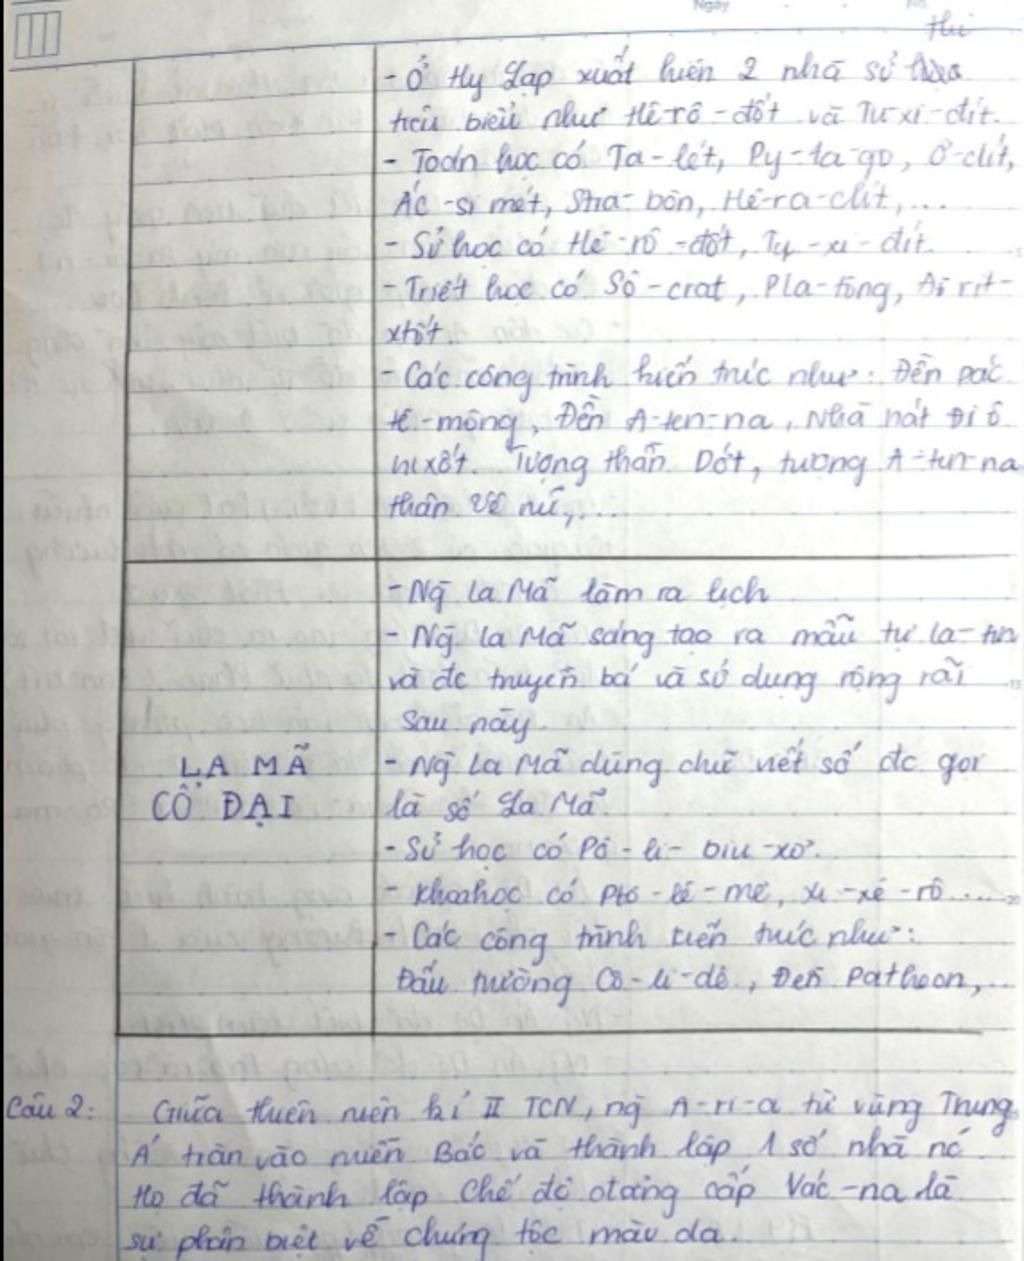 Ngày
- Ở Hy Lạp xuất hiện 2 nhà sử
tiêu biểu như Hê-rô-đốt và Tu-xi-đít.
- Toán học có Ta-lét, Py-ta-go, Ơ-clít,
Ác-si mét, Stra-bôn, Hê-ra-clit,...
- Sử học có Hê-rô-đốt, Ty-xi-đít.
- Triết học có Sô-crat, Pla-tông, Ai rit-
xtốt
- Các công trình kiến trúc như: Đền pác
tê-mông, Đền A-ten-na, Nhà hát Đi ô
ni xốt. Tượng thần Dớt, tượng A-ten-na
thần Vệ nữ,...
- Ng̃ La Mã làm ra lịch
- Ng̃ La Mã sáng tạo ra mẫu tự la-tin
và đc truyền bá và sử dụng rộng rãi
sau này.
LA MÃ
CỔ ĐẠI
- Ng̃ La Mã dùng chữ viết số đc gọi
là số La Mã
- Sử học có Pô-li-biu-xơ.
- khoahoc có Ptô-lê-mê, xi-xê-rô.....
- Các công trình kiến trúc như:
Đấu trường Cô-li-dê, Đền Patheon,...
Câu 2: Giữa thiên niên kỉ II TCN, ng̃ A-ri-a từ vùng Trung
Á tràn vào miền Bắc và thành lập 1 số nhà nc
Họ đã thành lập Chế độ đẳng cấp Vác-na là
sự phân biệt về chủng tộc màu da.